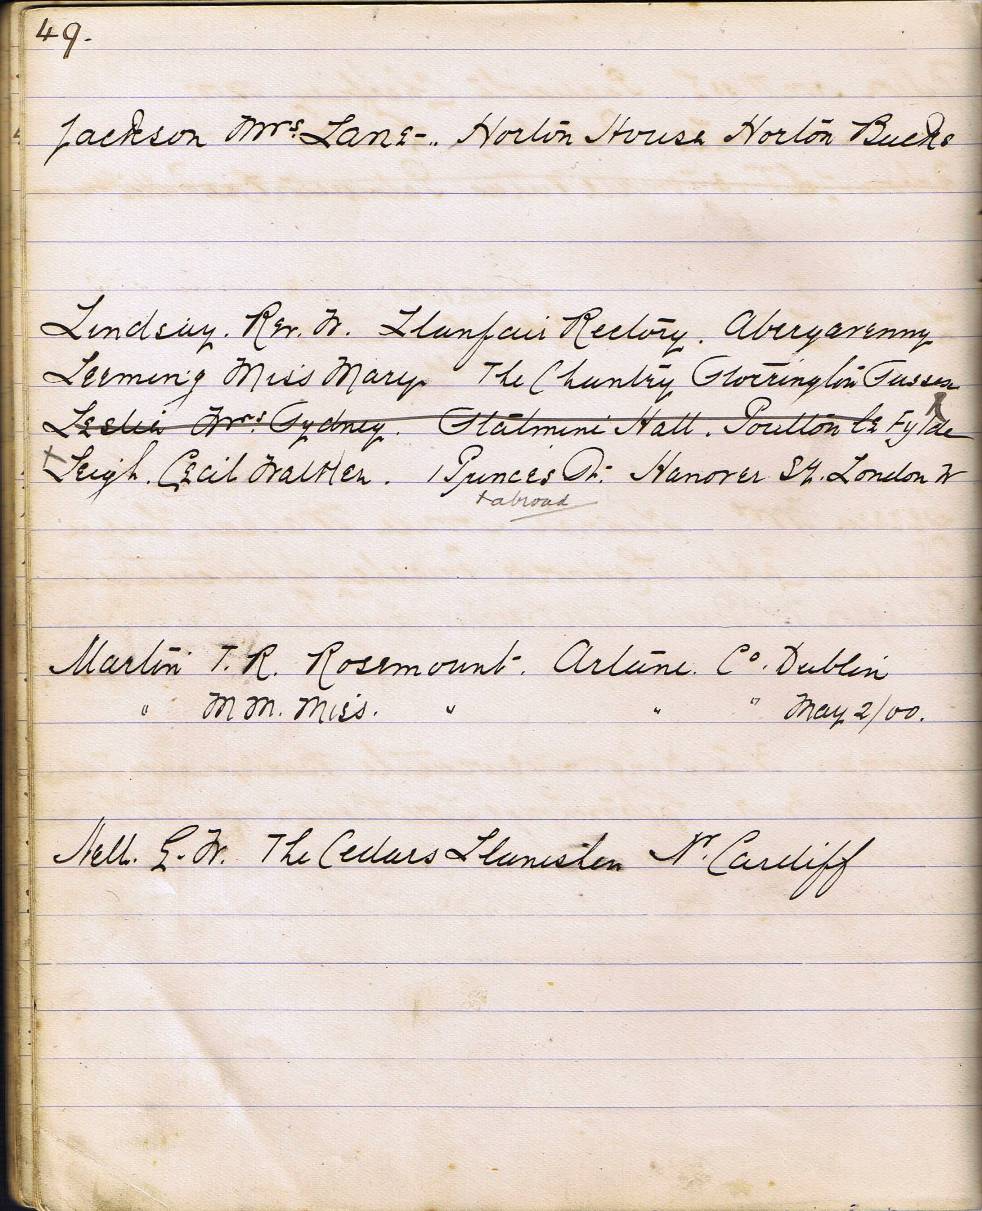 49.
Jackson Mrs. Lane- .. Horton House Horton Bucks
Lindsay. Rev. W. Llanfair Rectory. Abergavenny
Leeming Miss Mary. The Chantry Storrington Sussex
Leslie Mrs. Sydney. Stalmine Hall. Poulton le Fylde
+ Leigh. Cecil Walker. 1 Princes St. Hanover Sq. London W
+ abroad
Martin T. R. Rosemount. Artane. Co. Dublin
" M M. Miss. " " " May 2/00.
Nell. G. W. The Cedars Llanishen Nr. Cardiff